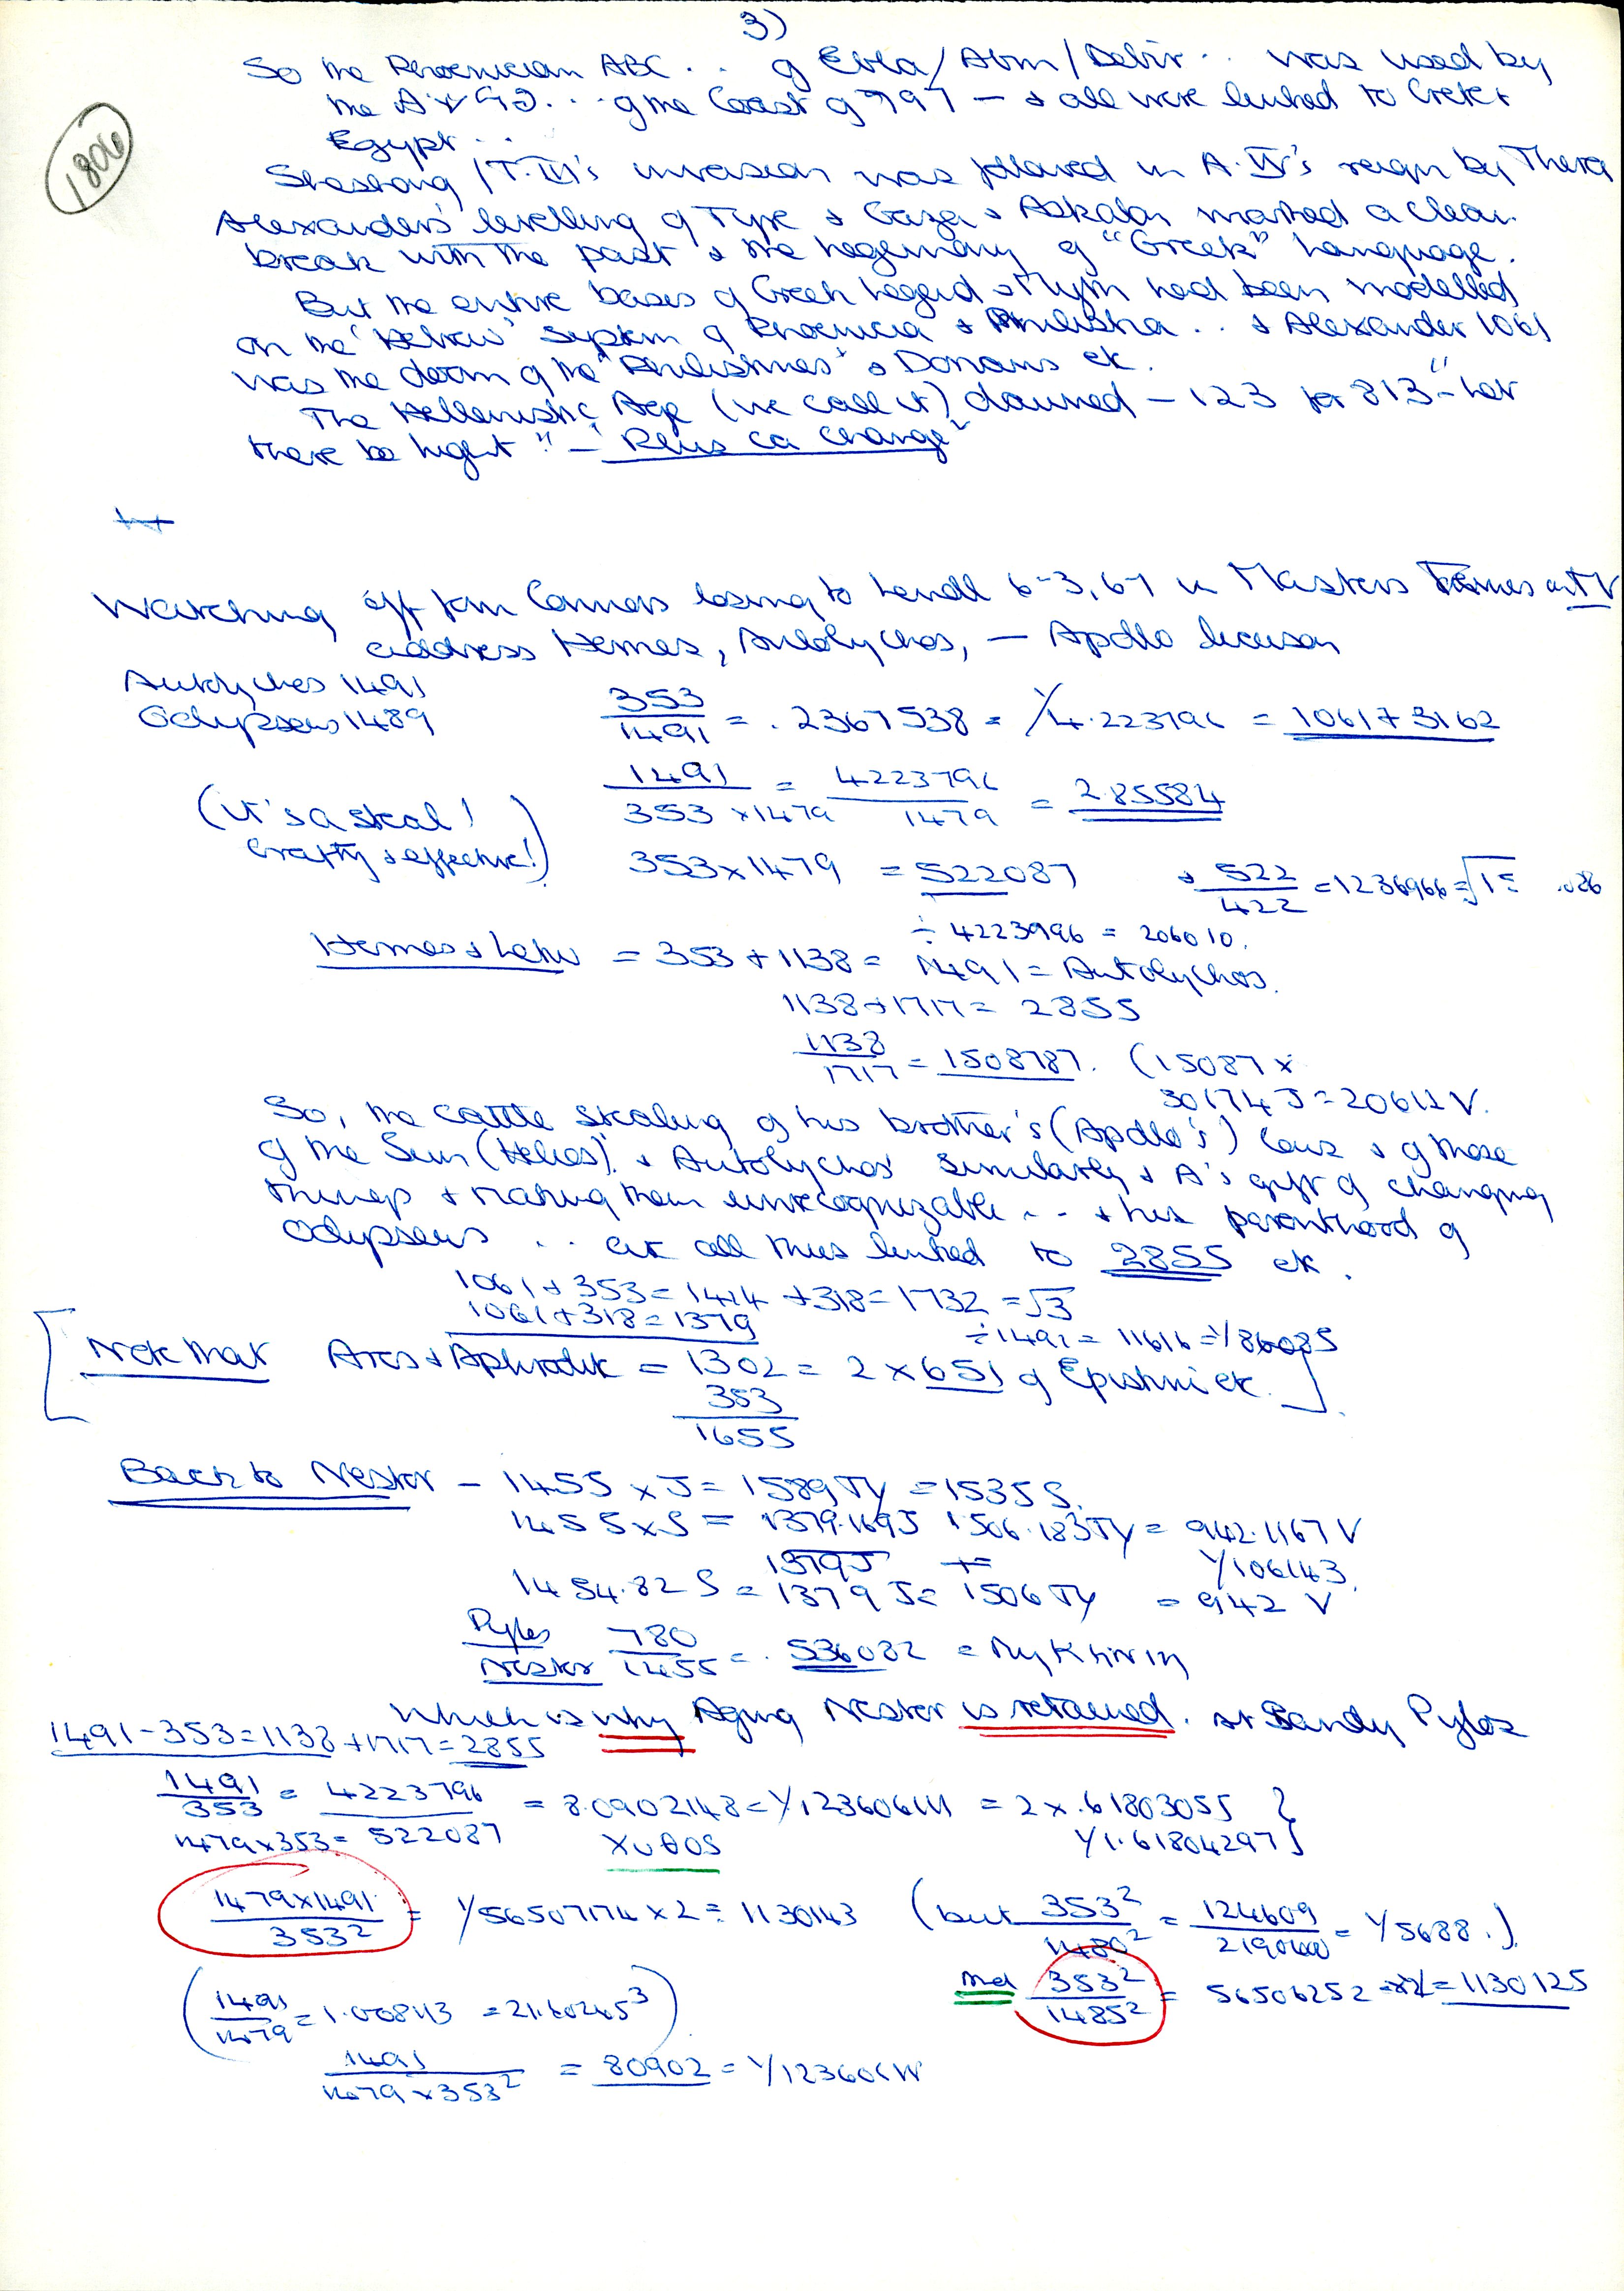 3)
1806
So the Phoenician ABC . . of Ebla / / Debir . . was used by
the . . . of the Coast of 797 — & all were linked to Crete &
Egypt . .
(T.III)'s invasion was followed in A.IV's reign by Thera
Alexander's levelling of Tyre & Gaza & Askalon marked a clean
break with the past & the hegemony of "Greek" Language.
But the entire bases of Greek Legend & Myth had been modelled
on the 'Hebrew' system of Phoenicia & Philistia . . & Alexander 1061
was the doom of the 'Philistines' & Dorians etc.
The Hellenistic Age (we call it) dawned – 123 for 813 – "Let
there be light" – Plus ca change
Watching Connors losing to Lendl 6-3, 67 in Masters on TV
address Hermes, Autolychos, — Apollo
Autolychos 1491
Odysseus 1489
353/1491 = .2367538 = 1/4.223796 = 1061 + 3162
1491/353 x 1479 = 4223796/1479 = 285584
(it's a steal!
Crafty & effective!)
353 x 1479 = 522087 & 522/422 = 1236966 = √15 .026
÷ 4223996 = 206010.
Hermes & Leto = 353 + 1138 = 1491 = Autolychos.
1138 + 1717 = 2855
1138/1717 = 1508787. (15087 x
30174 J = 20612 V.
So, the cattle stealing of his brother's (Apollo's) cows & of those
of the Sun (Helios). & Autolychos' similarly & A's gift of changing
things & making them unrecognizable . . & his parenthood of
Odysseus . . are all thus linked to 2855 etc.
1061 + 353 = 1414 + 318 = 1732 = √3
1061 + 318 = 1379
÷ 1491 = 11616 = 1/86085
[Note that Ares & Aphrodite = 1302 = 2 x 651 of etc.]
353
1655
Back to Nestor – 1455 x J = 1589 Ty = 1535 S.
1455 x S = 1379.169 J 1506.183 Ty = 942.1167 V
1379 J 1/106143.
1454.82 S = 1379 J = 1506 Ty = 942 V
Pylos/Nestor 780/1455 = .536082 =
Which is why Aging Nestor is retained. at Sandy Pylos
1491 – 353 = 1138 + 1717 = 2855
1491/353 = 4223796 = 8.0902148 = 1/.12360611 = 2 x .61803055 }
1479 x 353 = 522087 1/1.61804297 }
ΧυθΟS
1479 x 1491/353² = 1/56507174 x 2 = 1130143 (but 353²/1480² = 124609/2190400 = 1/5688.)
(1491/1479 = 1.008113 = 21.60245³)
and 353²/1485² = 56506252 x 2 = 1130125
1491/1479 x 353² = 80902 = 1/12360